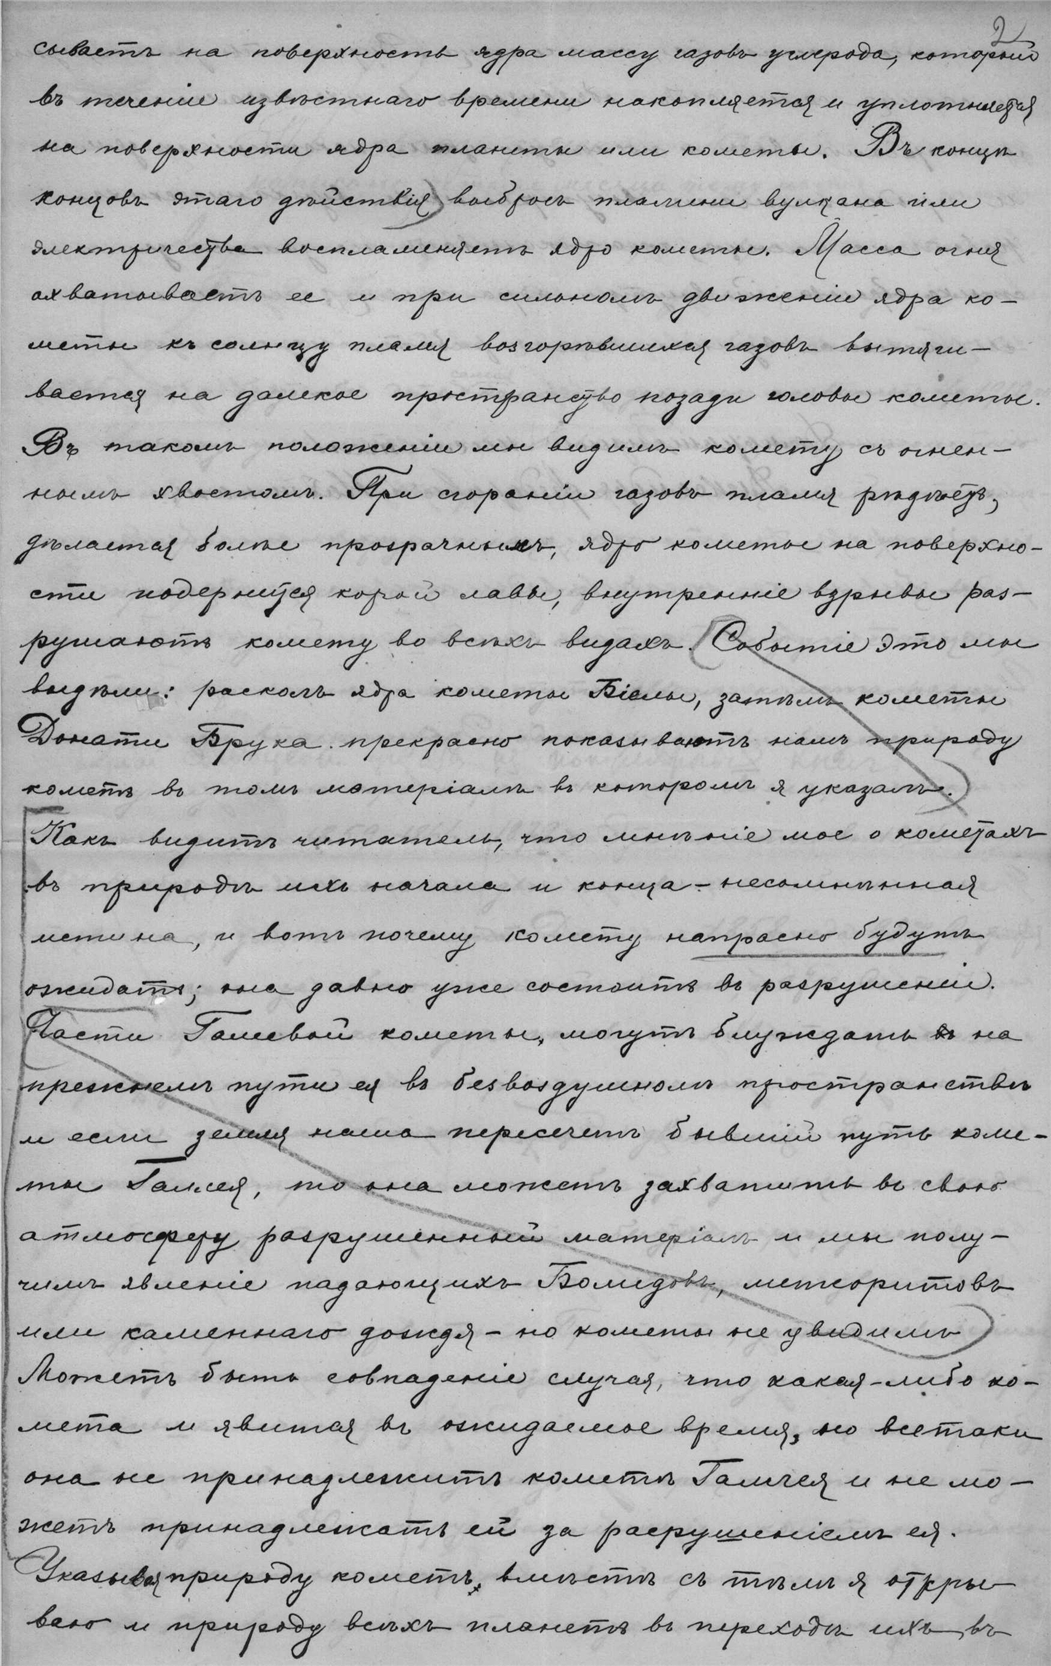 2
сываетъ на поверхность ядра массу газовъ углерода, который
въ теченіе извѣстнаго времени накопляется и уплотняется
на поверхности ядра планеты или кометы. Въ концѣ
концовъ этаго дѣйствія) выбросъ пламени вулкана или
электричества воспламеняетъ ядро кометы. Масса огня
охватываетъ ее и при сильномъ движеніи ядра ко-
меты къ солнцу пламя возгорѣвшихся газовъ вытяги-
вается на далекое пространство позади головы кометы.
Въ такомъ положеніи мы видимъ комету съ огнен-
нымъ хвостомъ. При сгораніи газовъ пламя рѣдѣетъ,
дѣлается болѣе прозрачнымъ, ядро кометы на поверхно-
сти подернится корой лавы, внутренніе взрывы раз-
рушаютъ комету во всѣхъ видахъ. (Событіе это мы
видѣли: расколъ ядра кометы Біелы, затѣмъ кометы
Донати Брука прекрасно показываютъ намъ природу
кометъ въ томъ матеріалѣ въ которомъ я указалъ.)
Какъ видитъ читатель, что мнѣніе мое о кометахъ
въ природѣ ихъ начала и конца - несомнѣнная
истина, и вотъ почему комету напрасно будутъ
ожидать; она давно уже состоитъ въ разрушеніи.
Части Галлевой кометы, могутъ блуждать на
прежнемъ пути ея въ безвоздушномъ пространствѣ
и если земля наша пересечетъ бывшій путь коме-
ты Галлея, то она можетъ захватить въ свою
атмосферу разрушенный матеріалъ и мы полу-
чимъ явленіе падающихъ Болидовъ, метеоритовъ
или каменнаго дождя - но кометы не увидимъ)
Можетъ быть совпаденіе случая, что какая-либо ко-
мета и явится въ ожидаемое время, но всетаки
она не принадлежитъ кометѣ Галлея и не мо-
жетъ принадлежать ей за разрушеніемъ ея.
Указывая природу кометъ, вмѣстѣ съ тѣмъ я откры-
ваю и природу всѣхъ планетъ въ переходѣ ихъ въ